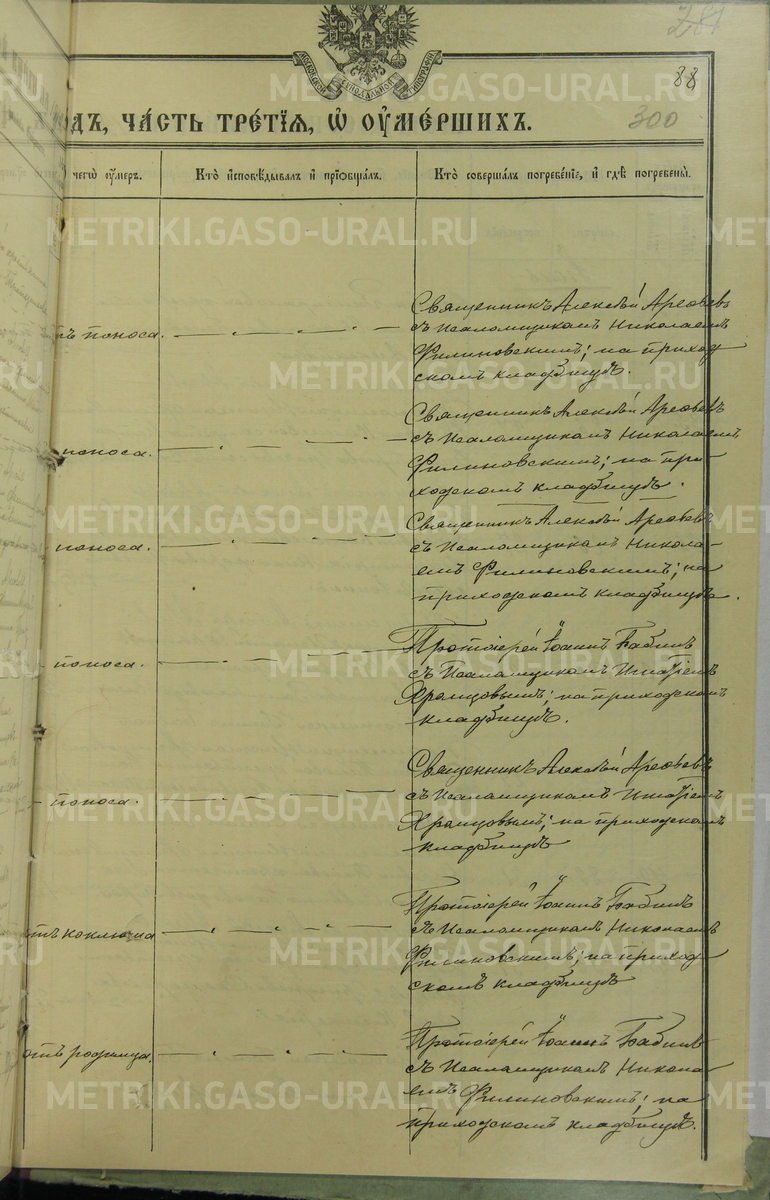 281
88
300
МОСКОВСКОЙ СѴНОДАЛЬНОЙ ТИПОГРАФІИ
ОДЪ, ЧА́СТЬ ТРЕ́ТІЯ, Ѡ ОУМЕ́РШИХЪ.
чегѡ̀ оу́меръ.
Кто̀ и҆сповѣ́дывалъ и҆ прїѻбща́лъ.
Кто̀ соверша́лъ погребе́нїе, и҆ гдѣ̀ погребены̀.
тъ поноса.
Священникъ Алексѣй Арефьевъ
съ Псаломщикомъ Николаемъ
Филиновскимъ; на приход-
скомъ кладбищѣ.
поноса.
Священникъ Алексѣй Арефьевъ
съ Псаломщикомъ Николаемъ
Филиновскимъ; на при-
ходскомъ кладбищѣ.
поноса.
Священникъ Алексѣй Арефьевъ
съ Псаломщикомъ Никола-
емъ Филиновскимъ; на
приходскомъ кладбищѣ.
поноса.
Протоіерей Іоаннъ Бабинъ
съ Псаломщикомъ Игнатіемъ
Храмцовымъ; на приходскомъ
кладбищѣ.
поноса.
Священникъ Алексѣй Арефьевъ
съ Псаломщикомъ Игнатіемъ
Храмцовымъ; на приходскомъ
кладбищѣ
отъ коклюша
Протоіерей Іоаннъ Бабинъ
съ Псаломщикомъ Николаемъ
Филиновскимъ; на приход-
скомъ кладбищѣ
отъ родимца.
Протоіерей Іоаннъ Бабинъ
съ Псаломщикомъ Никола-
емъ Филиновскимъ; на
приходскомъ кладбищѣ.
METRIKI.GASO-URAL.RU